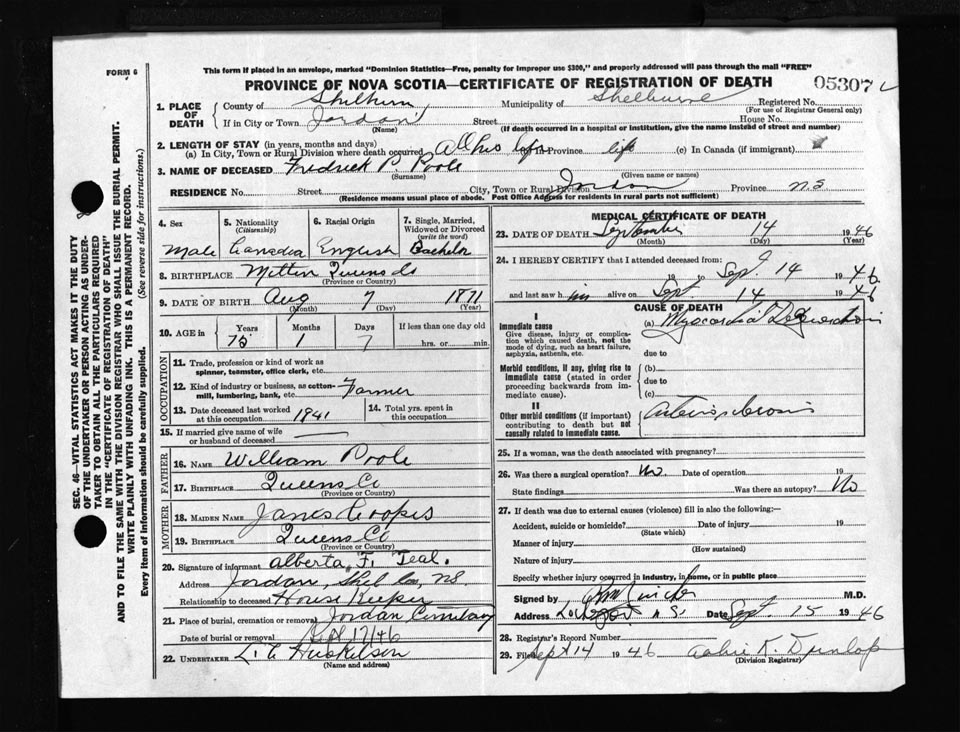 FORM 6
This form if placed in an envelope, marked "Dominion Statistics—Free, penalty for improper use $300," and properly addressed will pass through the mail "FREE"
PROVINCE OF NOVA SCOTIA—CERTIFICATE OF REGISTRATION OF DEATH
05307
SEC. 46—VITAL STATISTICS ACT MAKES IT THE DUTY
OF THE UNDERTAKER OR PERSON ACTING AS UNDER-
TAKER TO OBTAIN ALL THE PARTICULARS REQUIRED
IN THE "CERTIFICATE OF REGISTRATION OF DEATH"
AND TO FILE THE SAME WITH THE DIVISION REGISTRAR WHO SHALL ISSUE THE BURIAL PERMIT.
WRITE PLAINLY WITH UNFADING INK. THIS IS A PERMANENT RECORD.
Every item of information should be carefully supplied. (See reverse side for instructions.)
1. PLACE OF DEATH
County of Shelburn Municipality of Shelburne Registered No.
(For use of Registrar General only)
If in City or Town Jordan Street House No.
(Name) (If death occurred in a hospital or institution, give the name instead of street and number)
2. LENGTH OF STAY (in years, months and days)
(a) In City, Town or Rural Division where death occurred All his life In Province life (c) In Canada (if immigrant)
3. NAME OF DECEASED Fredrick P. Poole
(Surname) (Given name or names)
RESIDENCE No. Street City, Town or Rural Division Jordan Province N.S.
(Residence means usual place of abode. Post Office Address for residents in rural parts not sufficient)
4. Sex 5. Nationality (Citizenship) 6. Racial Origin 7. Single, Married, Widowed or Divorced (write the word)
Male Canadia English Bachelor
8. BIRTHPLACE Queens Co
(Province or Country)
9. DATE OF BIRTH Aug 7 1871
(Month) (Day) (Year)
10. AGE in Years Months Days If less than one day old
75 1 7 hrs. or min.
OCCUPATION
11. Trade, profession or kind of work as
spinner, teamster, office clerk, etc.
12. Kind of industry or business, as cotton-
mill, lumbering, bank, etc. Farmer
13. Date deceased last worked
at this occupation 1941
14. Total yrs. spent in
this occupation
15. If married give name of wife
or husband of deceased
FATHER
16. NAME William Poole
17. BIRTHPLACE Queens Co
(Province or Country)
MOTHER
18. MAIDEN NAME
19. BIRTHPLACE Queens Co
(Province or Country)
20. Signature of informant Alberta F. Teal.
Address Jordan, Shel Co, N.S.
Relationship to deceased House Keeper
21. Place of burial, cremation or removal Jordan Cemetary
Date of burial or removal 17/46
22. UNDERTAKER
(Name and address)
MEDICAL CERTIFICATE OF DEATH
23. DATE OF DEATH September 14 1946
(Month) (Day) (Year)
24. I HEREBY CERTIFY that I attended deceased from
19 to Sept. 14 1946
and last saw him alive on Sept. 14 1946
CAUSE OF DEATH
I
Immediate cause
Give disease, injury or complica-
tion which caused death, not the
mode of dying, such as heart failure,
asphyxia, asthenia, etc.
(a) Myocardial Degeneration
due to
Morbid conditions, if any, giving rise to
immediate cause (stated in order
proceeding backwards from im-
mediate cause).
(b)
due to
(c)
II
Other morbid conditions (if important)
contributing to death but not
causally related to immediate cause.
Arteriosclerosis
25. If a woman, was the death associated with pregnancy?
26. Was there a surgical operation? No. Date of operation 19
State findings Was there an autopsy? No
27. If death was due to external causes (violence) fill in also the following:—
Accident, suicide or homicide? Date of injury 19
(State which)
Manner of injury
(How sustained)
Nature of injury
Specify whether injury occurred in industry, in home, or in public place
Signed by M.D.
Address Lockeport N.S. Date Sept 15 1946
28. Registrar's Record Number
29. Filed Sept 14 1946 K. Dunlop
(Division Registrar)